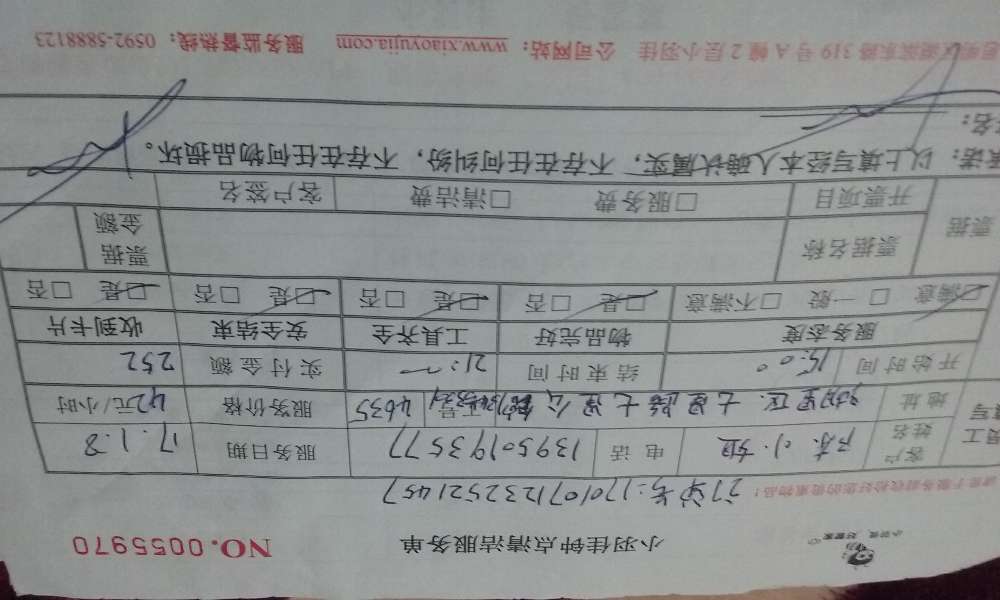 小羽佳钟点清洁服务单 NO.0055970
请您于服务前收拾好您的贵重物品!
订单号:1701071232521457
客户姓名 小姐 电话 13950193577 服务日期 17.1.8
地址 服务价格 42元/小时
开始时间 15:00 结束时间 21:00 实付金额 252
服务态度 物品完好 工具齐全 安全结束 收到卡片
☑满意 □一般 □不满意 ☑是 □否 ☑是 □否 ☑是 □否 ☑是 □否
票据 票据名称 票据金额
开票项目 □服务费 □清洁费 客户签名
以上填写经本人确认属实,不存在任何纠纷,不存在任何物品损坏。
名:
319号A幢2层小羽佳 公司网站:www.xiaoyujia.com 服务监督热线:0592-5888123